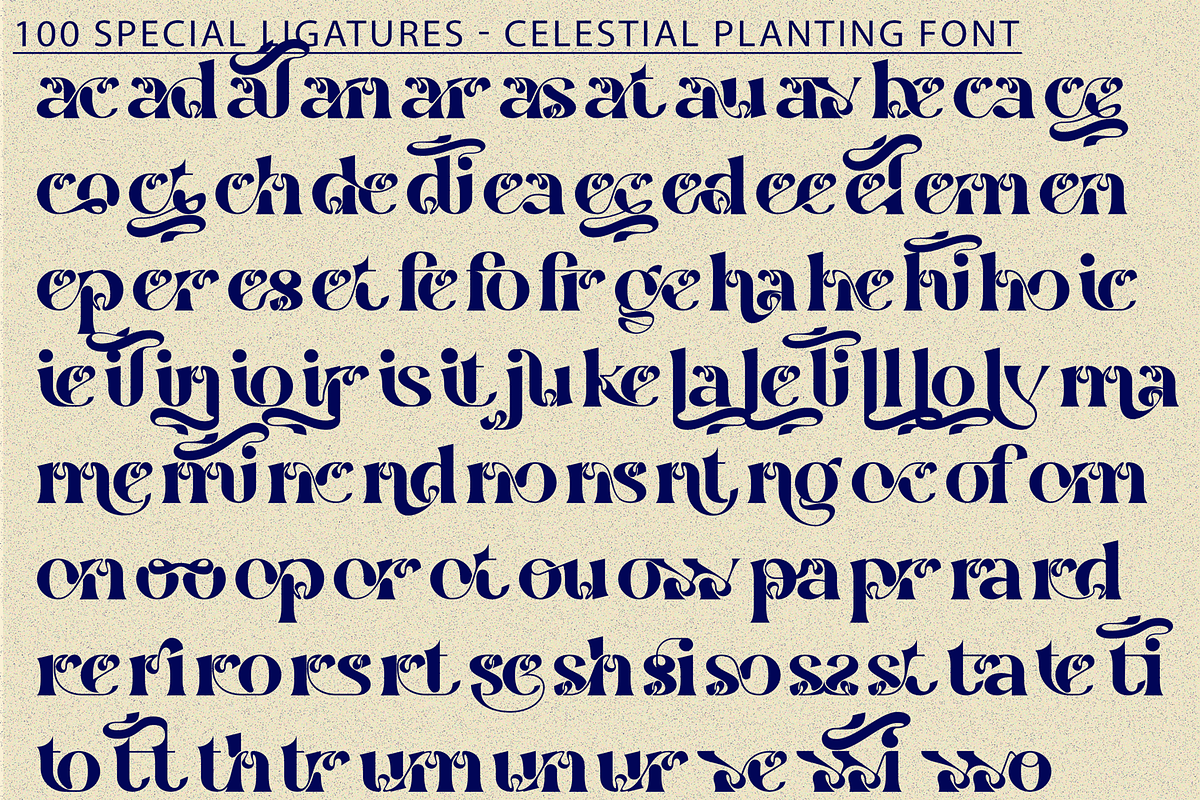 100 SPECIAL LIGATURES - CELESTIAL PLANTING FONT
ac ad al an ar as at au av be ca ce
co ct ch de di ea ec ed ee el em en
ep er es et fe fo fr ge ha he hi ho ic
ie il in io ir is it ju ke la le li ll lo ly ma
me mi nc nd no ns nt ng oc of om
on oo op or ot ou ow pa pr ra rd
re ri ro rs rt se sh si so ss st ta te ti
to tt th tr um un ur ve wi wo